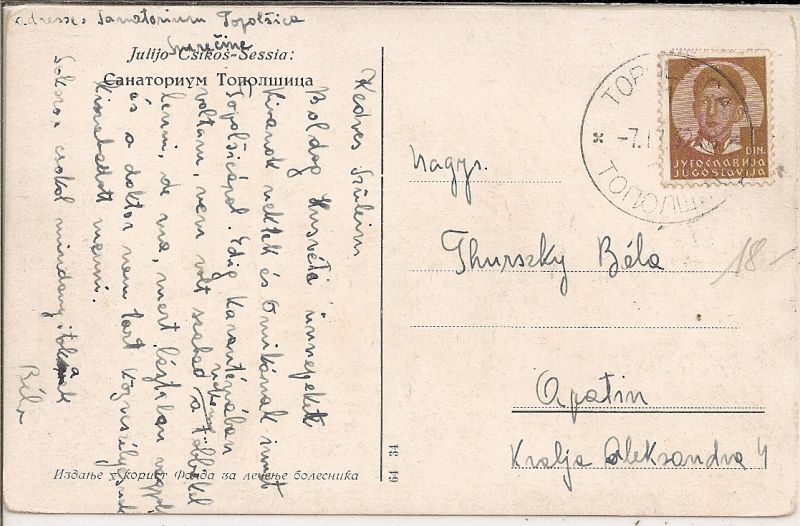 adresse: Sanatorium Topolšica
Julijo Csikoš-Sessia:
Санаториум Тополшица
Kedves Szüleim
Boldog Husvéti ünnepeket
Kivánok nektek és Omikának innét
Topolšicáról. Edig Karanténában
voltam, nem volt szabad nekem a többekel
lenni, de ma, mert láztalan vagyok
és a doktor nem tart közveszélyesnek
kimehetett menni.
Sokszor csokol mindnyájatokat
Béla
Издање у корист Фонда за лечење болесника
64 34
TOPOLŠICA
-7.IV
ТОПОЛШИЦА
DIN.
ЈУГОСЛАВИЈА
JUGOSLAVIJA
Nagys.
Thurszky Béla
18.-
Apatin
Kralja Aleksandra 4